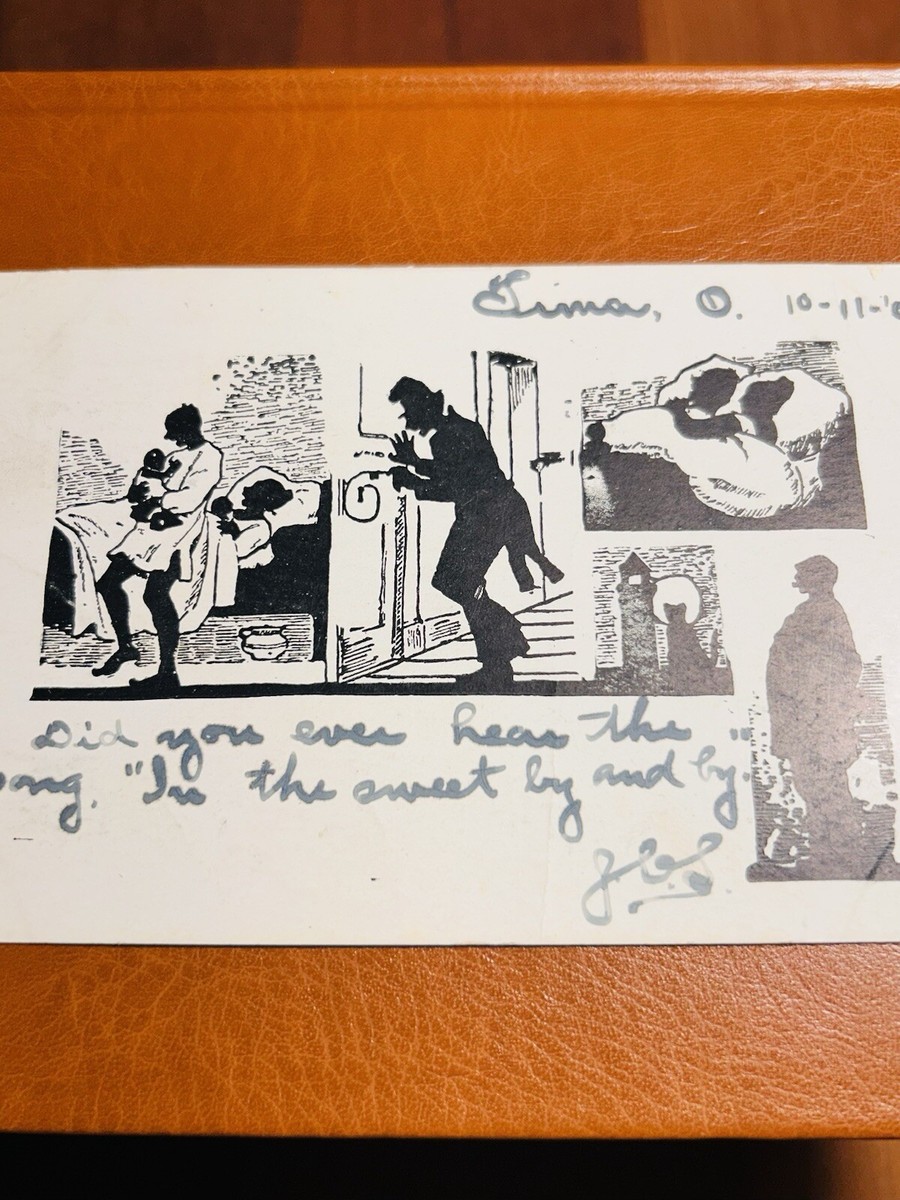 Lima, O. 10-11-'0
Did you ever hear the
ong, "In the sweet by and by."